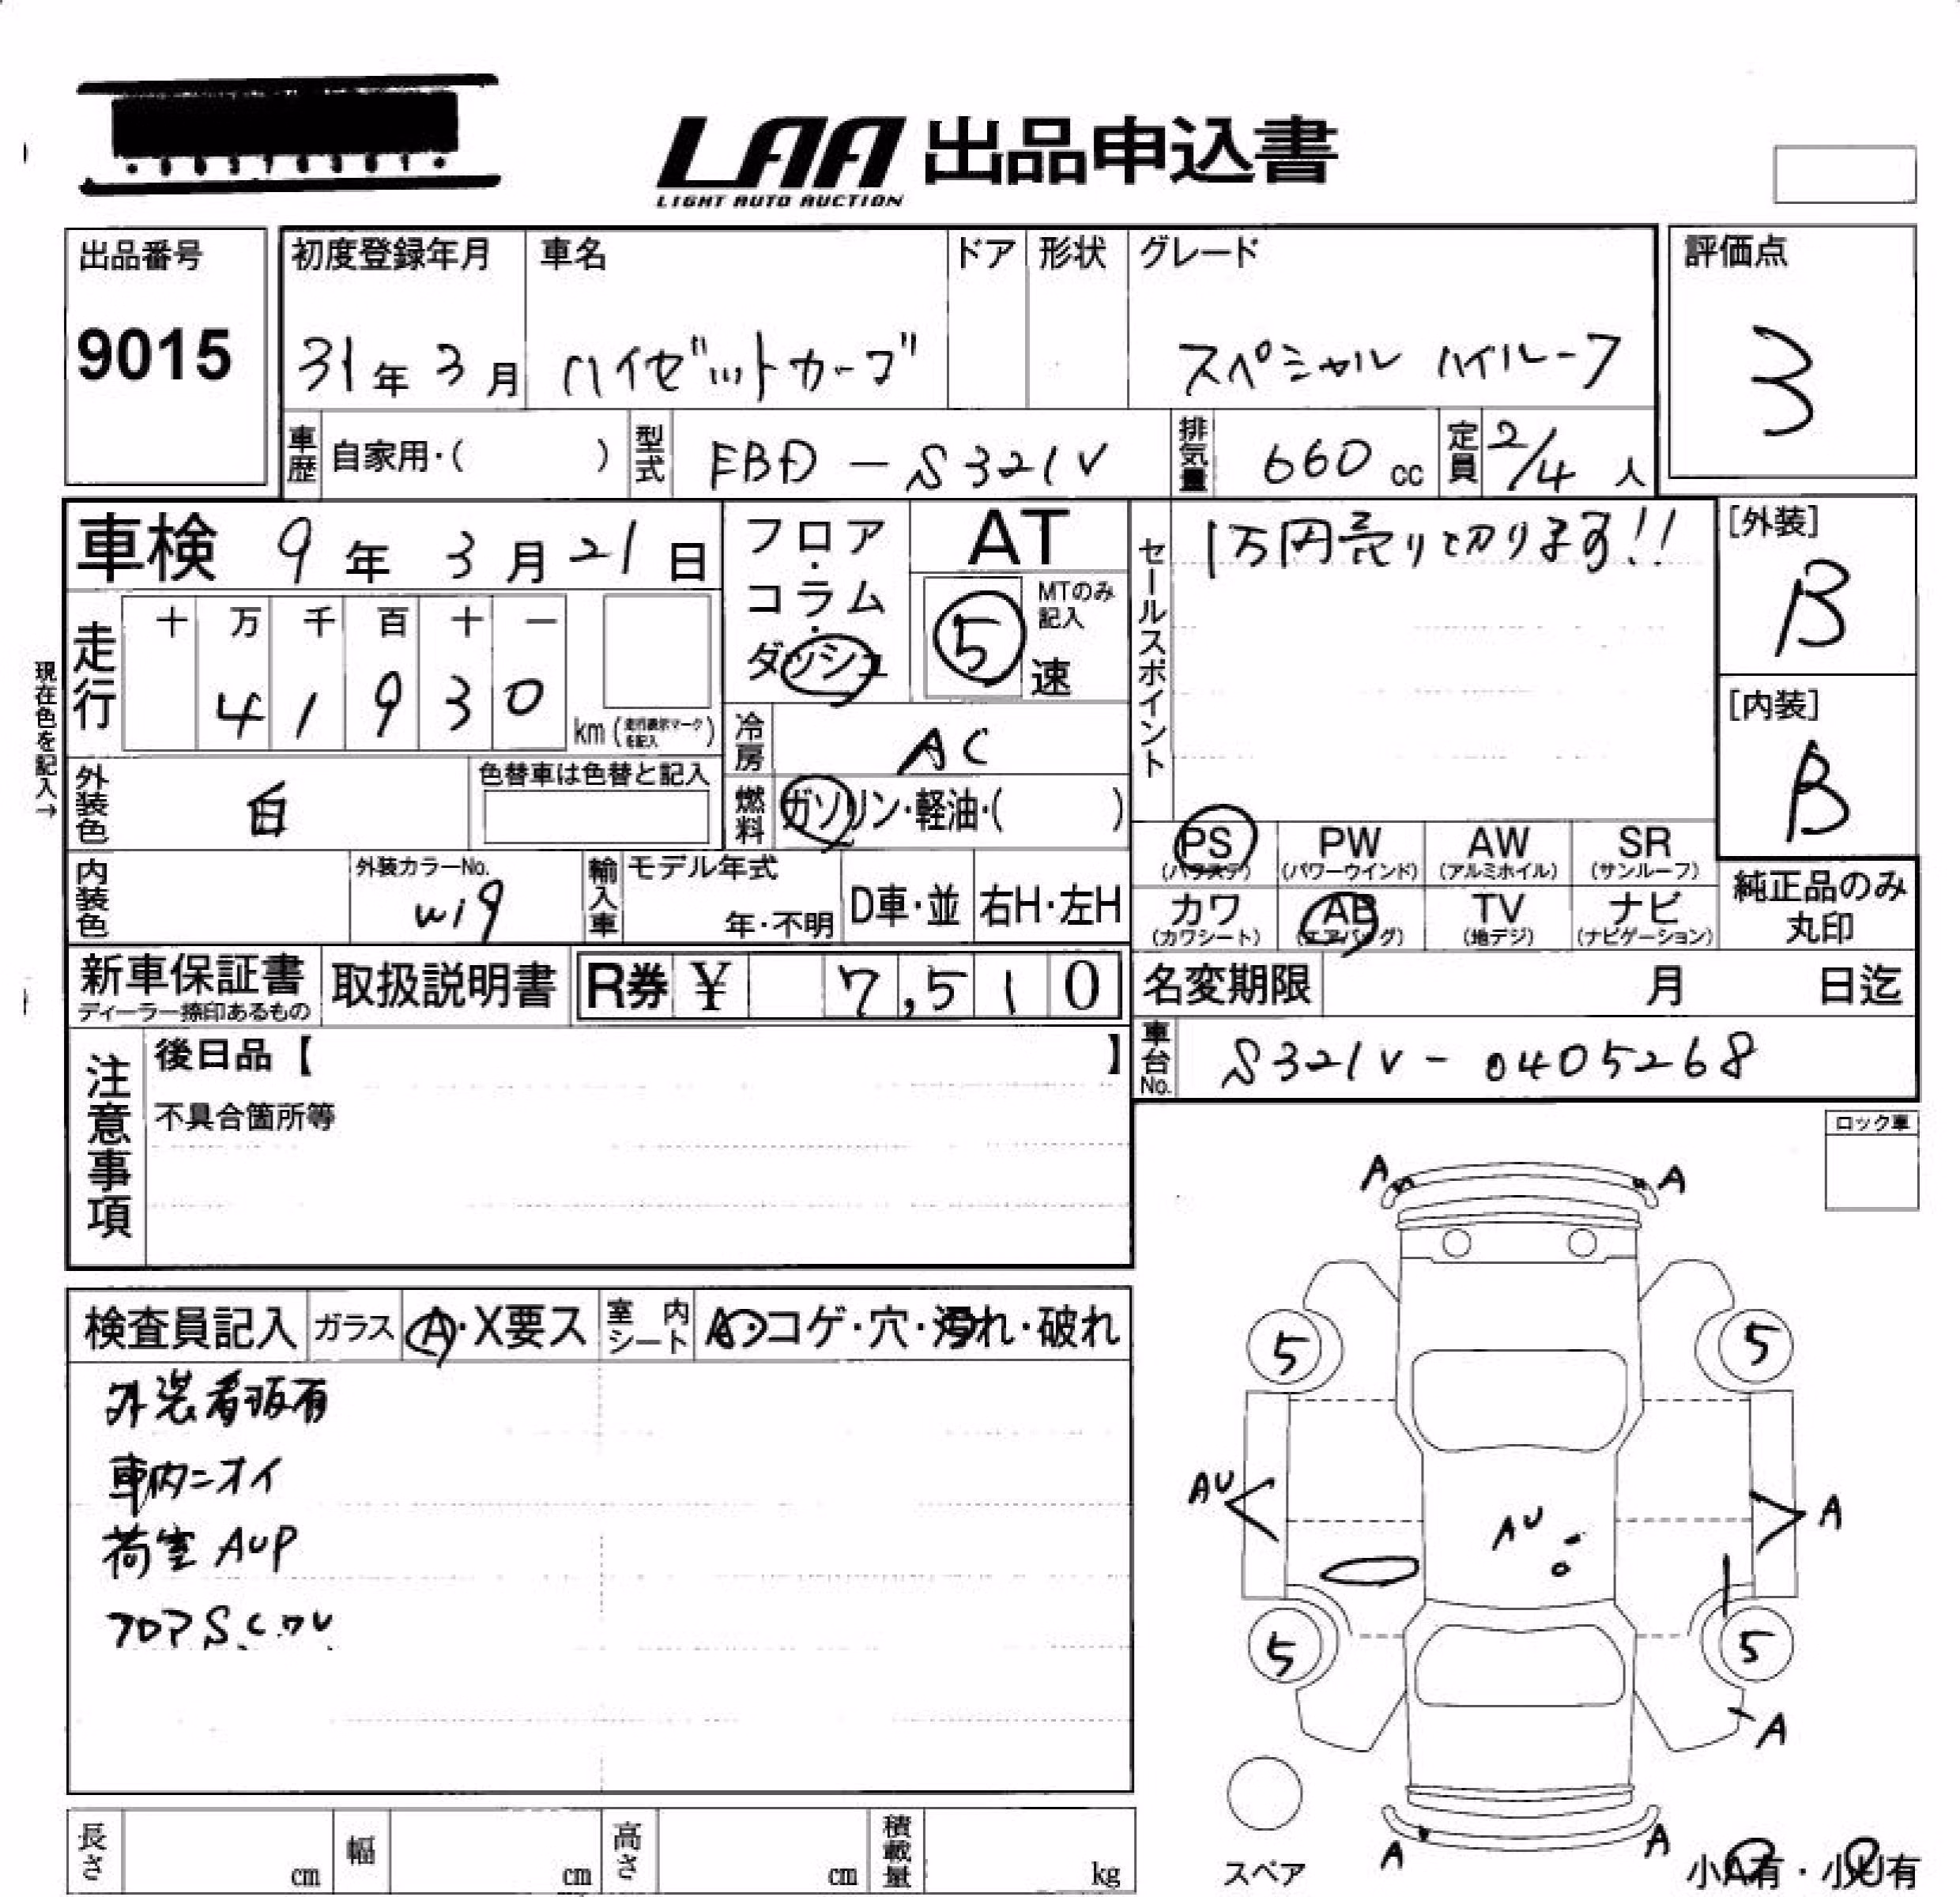 LAA 出品申込書
LIGHT AUTO AUCTION
出品番号
9015
初度登録年月
31年 3月
車名
ハイゼットカーゴ
ドア
形状
グレード
スペシャル ハイルーフ
評価点
3
車歴
自家用・( )
型式
EBD - S321V
排気量
660 cc
定員
2/4 人
車検 9年 3月 21日
フロア・コラム・ダッシュ
AT
MTのみ記入
5 速
セールスポイント
1万円売り切ります!!
[外装]
B
[内装]
B
現在色を記入→
走行
十 万 千 百 十 一
4 1 9 3 0
km (走行表示マークを記入)
冷房
AC
燃料
ガソリン・軽油・( )
外装色
白
色替車は色替と記入
内装色
外装カラーNo.
W19
輸入車
モデル年式
年・不明
D車・並
右H・左H
PS
(パワステ)
PW
(パワーウインド)
AW
(アルミホイル)
SR
(サンルーフ)
カワ
(カワシート)
AB
(エアバッグ)
TV
(地デジ)
ナビ
(ナビゲーション)
純正品のみ
丸印
新車保証書
ディーラー捺印あるもの
取扱説明書
R券 ¥ 7,510
名変期限 月 日迄
車台No.
S321V - 0405268
注意事項
後日品【 】
不具合箇所等
ロック車
検査員記入
ガラス
A・X要ス
室内シート
コゲ・穴・汚れ・破れ
外装看板有
車内ニオイ
荷室 AUP
フロアS.C.クレ
A A
5 5
AU
AU
A
5 5
A
A A
スペア
小A有・小U有
長さ cm
幅 cm
高さ cm
積載量 kg